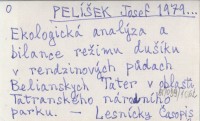 O PELÍŠEK Josef 1979...
Ekologická analýza a
bilance režimu dusíku
v rendzinových půdach
Belianských Tater v oblasti
Tatranského národního
parku. — Lesnícky časopis